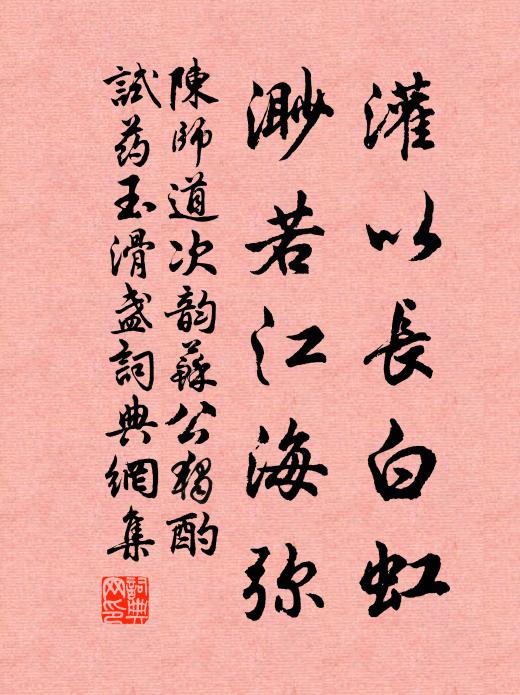 灌以長白虹
渺若江海弥
陳師道次韵蘇公獨酌
試药玉滑盏詞典網集
詞典網印